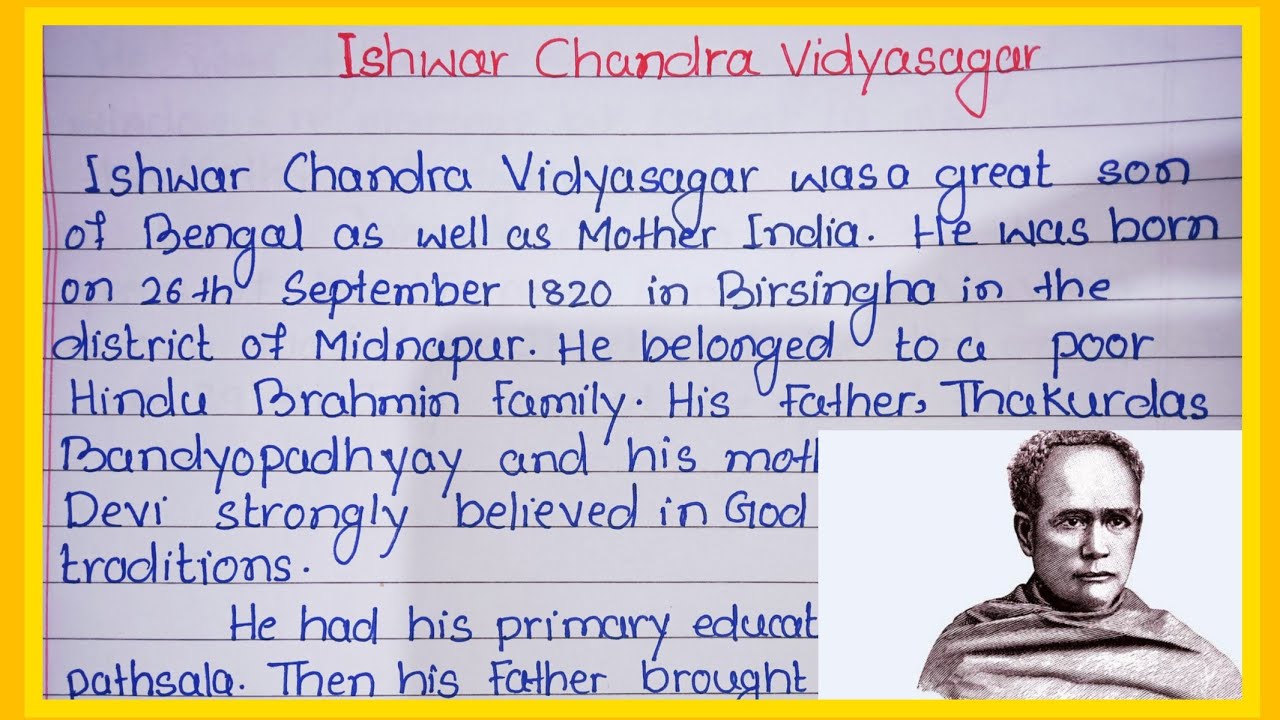 Ishwar Chandra Vidyasagar
Ishwar Chandra Vidyasagar was a great son
of Bengal as well as Mother India. He was born
on 26th September 1820 in Birsingha in the
district of Midnapur. He belonged to a poor
Hindu Brahmin family. His father, Thakurdas
Bandyopadhyay and his
Devi strongly believed in God
traditions.
He had his primary
pathsala. Then his father brought